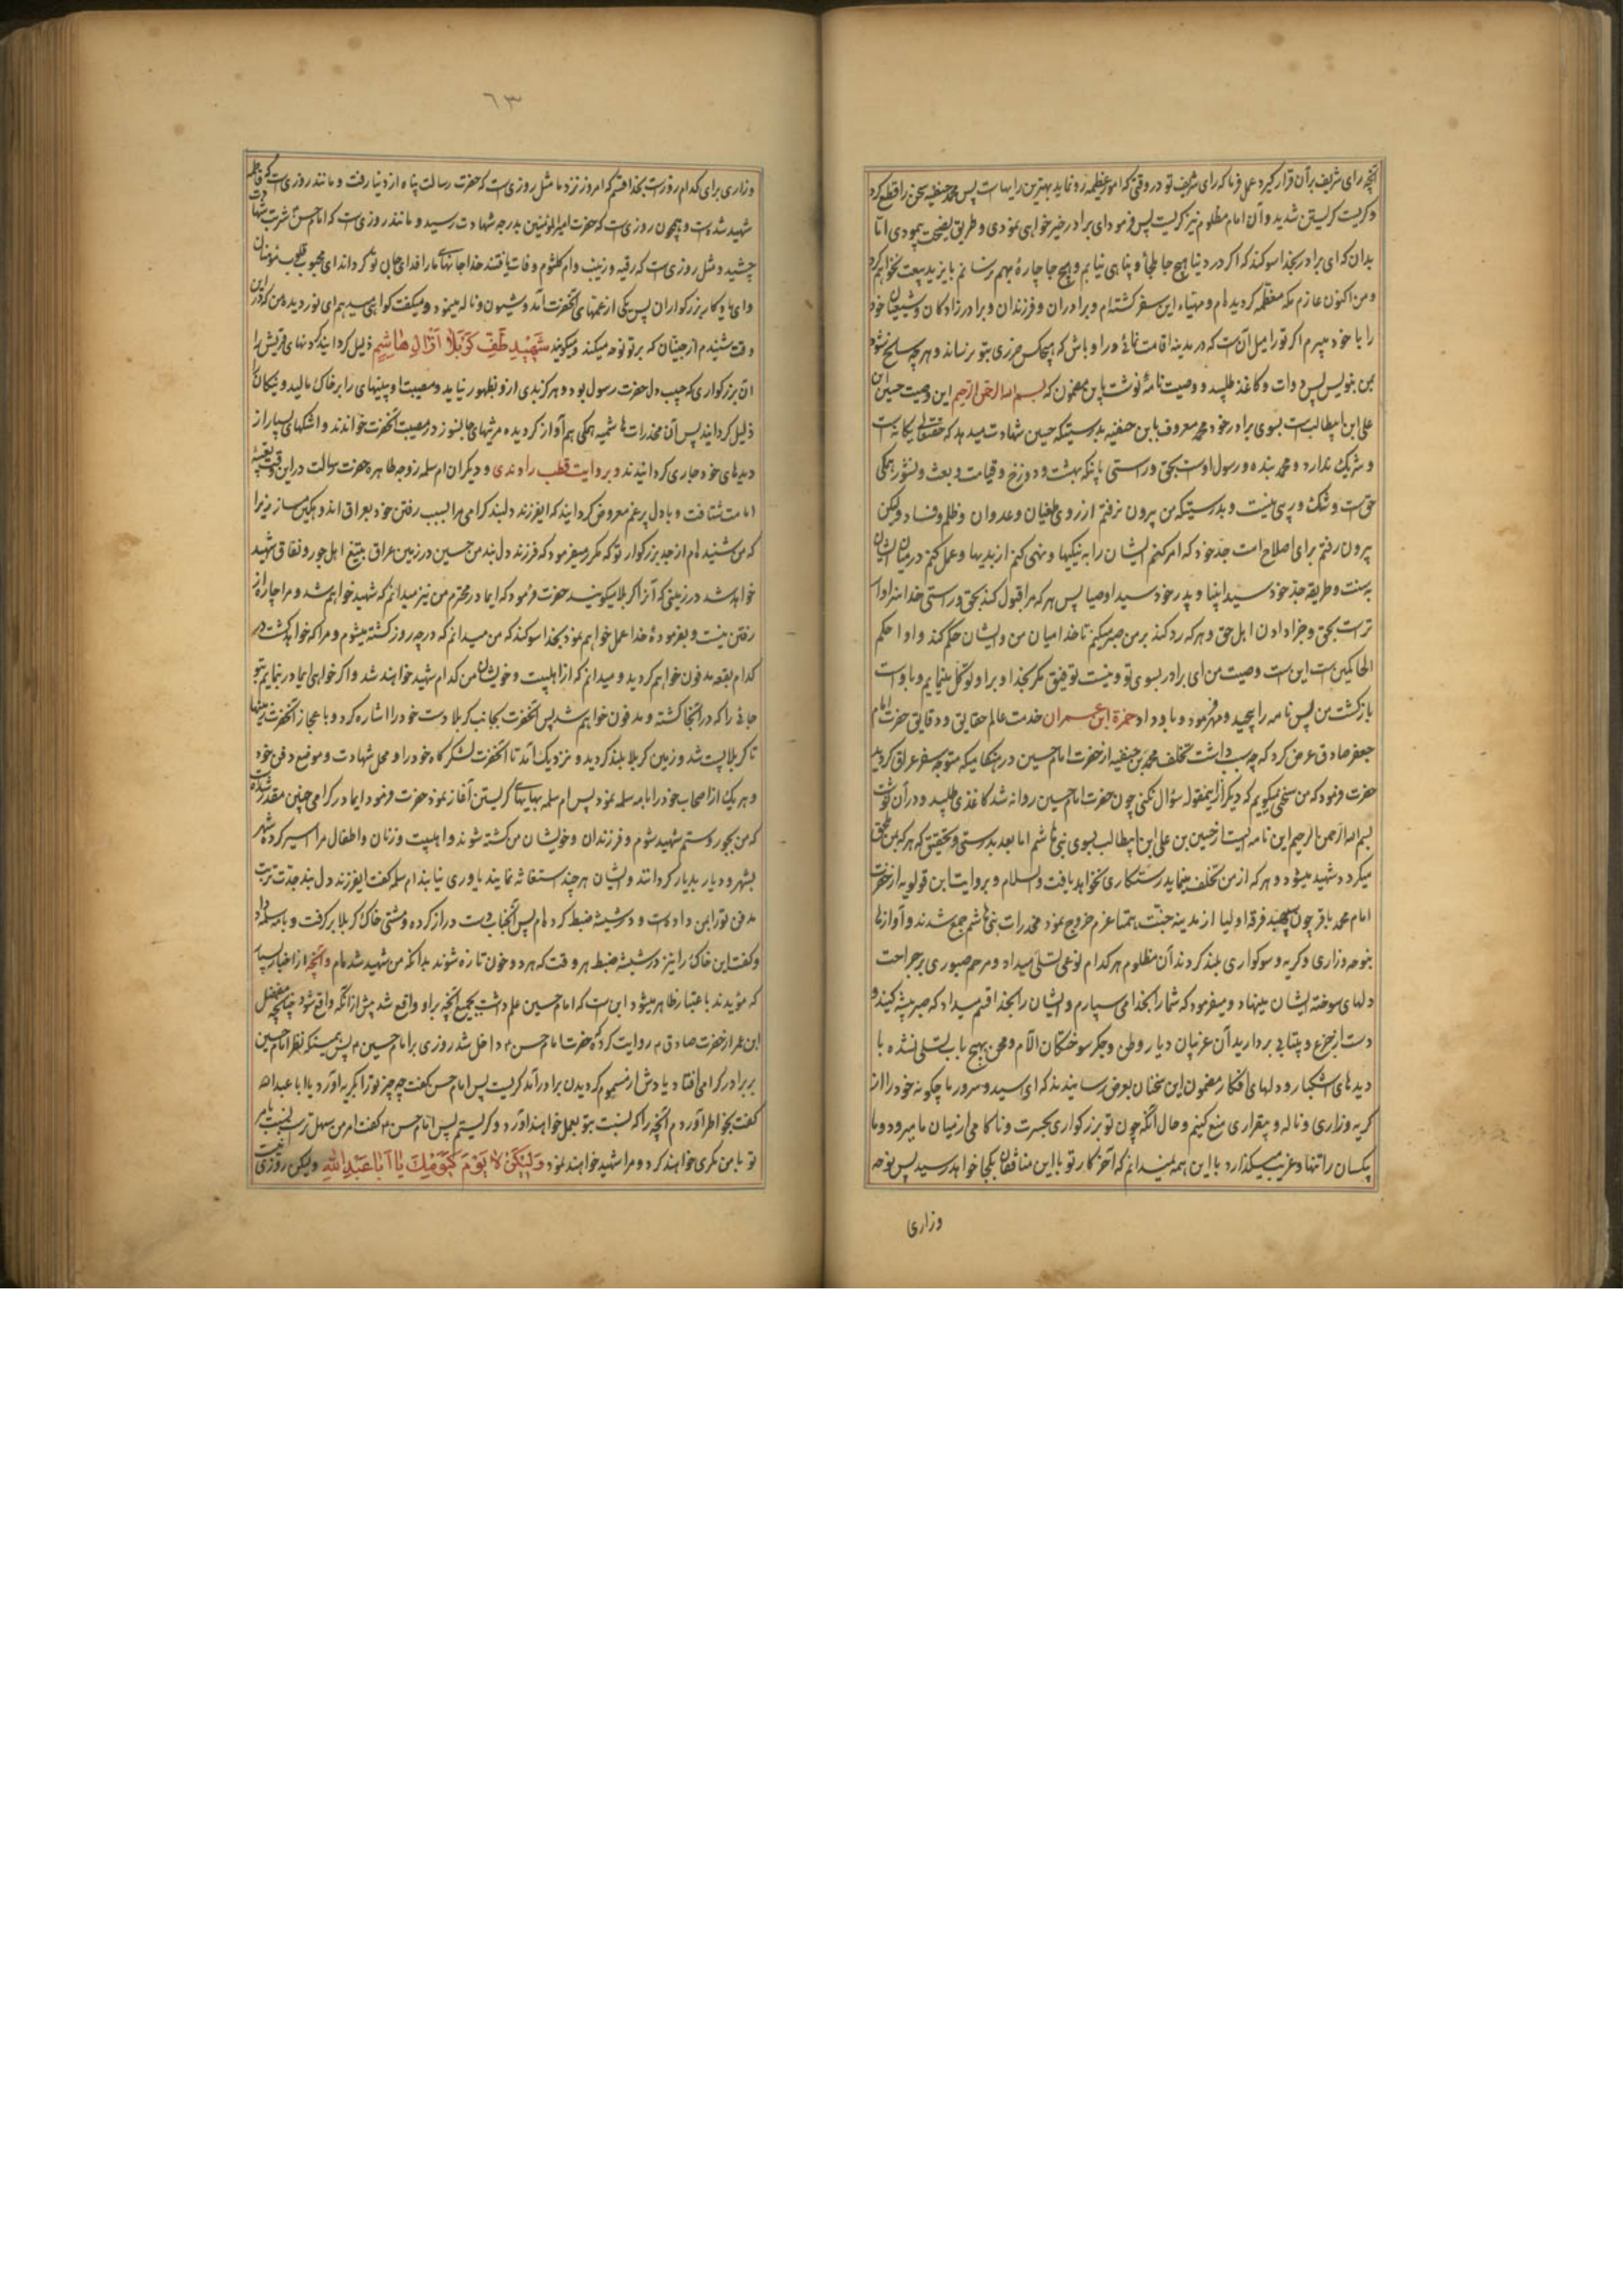 آنچه رای شریف برآن قرار گیرد عمل فرما که رای شریف تو در وقتی که امور عظیمه رو نماید بهترین رایهاست پس محمد حنفیه سخن را قطع کرد
و گریست گریستن شدید و آن امام مظلوم نیز گریست پس فرمود ای برادر خیر خواهی نمودی و طریق نصیحت پیمودی اما
بدان که ای برادر بخدا سوگند که اگر در دنیا هیچ جا ملجأ و پناهی نیابم و هیچ جا چاره بهم نرسانم با یزید بیعت نخواهم کرد
و من اکنون عازم مکه معظمه گردیده‌ام و مهیاء این سفر گشته‌ام و برادران و فرزندان و برادرزادگان و شیعیان خود
را با خود میبرم اگر تو را میل آن است که در مدینه اقامت نمائی درا و باش که هیچکس ضرری بتو نرساند و هر چه سانح شود
بمن بنویس پس دوات و کاغذ طلبید و وصیت نامه نوشت باین مضمون که بسم الله الرحمن الرحیم این وصیت حسین ابن
علی ابن ابیطالب است بسوی برادر خود محمد معروف بابن حنفیه بدرستیکه حسین شهادت میدهد که حقتعالی یگانه است
و شریک ندارد و محمد بنده و رسول اوست بحق و راستی باینکه بهشت و دوزخ و قیامت و بعث و نشور همگی
حق است و شک و ریبی نیست و بدرستیکه من بیرون نرفتم از روی طغیان و عدوان و ظلم و فساد ولیکن
بیرون رفتم برای اصلاح امت جد خود که امر کنم ایشان را به نیکیها و نهی کنم از بدیها و عمل کنم در میان ایشان
به سنت و طریقه جد خود سید انبیا و پدر خود سید اوصیا پس هر که مرا قبول کند بحق و راستی خدا سزاوار
تر است بحق و جزا دادن اهل حق و هر که رد کند بر من صبر میکنم تا خدا میان من و ایشان حکم کند و او احکم
الحاکمین است این است وصیت من ای برادر بسوی تو و نیست توفیق مگر بخدا و بر او توکل مینمایم و باوست
بازگشت من پس نامه را پیچید و مهر فرمود و باو داد حمزة ابن عمران خدمت عالم حقایق و دقایق حضرت امام
جعفر صادق عرض کرد که چه سبب داشت تخلف محمد بن حنفیه از حضرت امام حسین در هنگامیکه متوجه سفر عراق گردید
حضرت فرمود که من سخنی میگویم که دیگر ازین مقوله سؤال نکنی چون حضرت امام حسین روانه شد کاغذی طلبید و در آن نوشت
بسم الله الرحمن الرحیم این نامه ایست از حسین بن علی ابن ابیطالب بسوی بنی هاشم اما بعد بدرستی و تحقیق که هر که بمن ملحق
میگردد شهید میشود و هر که از من تخلف مینماید رستگاری نخواهد یافت والسلام و بروایت ابن قولویه از حضرت
امام محمد باقر چون سید فرقه اولیا از مدینه جنت همتا عزم خروج نمود مخدرات بنی هاشم جمع شدند و آوازها
بنوحه و زاری و گریه و سوگواری بلند کردند آن مظلوم هر کدام را نوعی تسلی میداد و مرهم صبوری بر جراحت
دلهای سوخته ایشان مینهاد و میفرمود که شما را بخدا می سپارم و ایشان را بخدا قسم میداد که صبر پیشه کنید و
دست از جزع و بیتابی بردارید آن غریبان دیار وطن و جگر سوختگان آلام و محن بهیچ باب تسلی نشده با
دیده‌های اشکبار و دلهای افکار مضمون این سخنان بعرض رسانیدند که ای سید و سرور ما چگونه خود را از
گریه و زاری و ناله و بیقراری منع کنیم و حال آنکه چون تو بزرگواری بحسرت و ناکامی از میان ما میرود و ما
بیکسان را تنها و غریب میگذارد با این همه نمیدانم که آخر کار تو با این منافقان بکجا خواهد رسید پس نوحه
وزاری
٦٣
وزاری برای کدام روز است بخدا قسم که امروز نزد ما مثل روزی است که حضرت رسالت پناه از دنیا رفت و مانند روزی است که فاطمه
شهید شده است و همچون روزی است که حضرت امیرالمؤمنین بدرجه شهادت رسید و مانند روزی است که امام حسن شربت شهادت
چشید و مثل روزی است که رقیه و زینب و ام کلثوم وفات یافتند خدا جانهای ما را فدای جان تو گرداند ای محبوب قلوب مؤمنان
و ای یادگار بزرگواران پس یکی از عمتهای آنحضرت آمد و شیون و ناله مینمود و میگفت گواهی میدهم ای نور دیده من که در این
وقت شنیدم از جنیان که بر تو نوحه میکنند و میگویند شَهیدِ طَفِّ کَربَلا اَذَلَّ الِ هاشِم ذلیل گردانید گردنهای قریش را
آن بزرگواری که حبیب دل حضرت رسول بود و هرگز بدی ازو بظهور نیاید و مصیبت او بینیهای را بر خاک مالید و نیکان را
ذلیل گردانید پس آن مخدرات هاشمیه همگی هم آواز گردیده مرثیهای جانسوز در مصیبت آنحضرت خواندند و اشکهای بسیار از
دیده‌های خود جاری گردانیدند و بروایت قطب راوندی و دیگران ام سلمه زوجه طاهره حضرت رسالت در این وقت
امامت شتافت و با دل پر غم معروض گردانید که ای فرزند دلبند گرامی مرا بسبب رفتن خود بعراق اندوهگین مساز زیرا
که من شنیده‌ام از جد بزرگوار تو که مکرر میفرمود که فرزند دل بند من حسین در زمین عراق بتیغ اهل جور و نفاق شهید
خواهد شد در زمینی که آنرا کربلا میگویند حضرت فرمود که ای مادر محترم من نیز میدانم که شهید خواهم شد و مرا چاره از
رفتن نیست و بفرموده خدا عمل خواهم نمود بخدا سوگند که من میدانم که در چه روز کشته میشوم و مرا که خواهد کشت و در
کدام بقعه مدفون خواهم گردید و میدانم که از اهلبیت و خویشان من کدام شهید خواهند شد و اگر خواهی ایمادر بنمایم بتو
جائی را که در آنجا کشته و مدفون خواهم شد پس آنحضرت بجانب کربلا دست خود را اشاره کرد و باعجاز آنحضرت زمینها
تا کربلا پست شد و زمین کربلا بلند گردید و نزدیک آمد تا آنحضرت لشکرگاه خود را و محل شهادت و موضع دفن خود
و هر یک از اصحاب خود را بام سلمه نمود پس ام سلمه بهایهای گریستن آغاز نمود حضرت فرمود ایمادر گرامی چنین مقدر شده
که من بجور و ستم شهید شوم و فرزندان و خویشان من کشته شوند و اهلبیت و زنان و اطفال مرا اسیر کرده شهر
بشهر و دیار بدیار گردانند و ایشان هر چند استغاثه نمایند یاوری نیابند ام سلمه گفت ای فرزند دل بند جدت تربت
مدفن تو را بمن داده است و در شیشه ضبط کرده‌ام پس آنجناب دست دراز کرده و مشتی خاک از کربلا برگرفت و بام سلمه داد
و گفت این خاک را نیز در شیشه ضبط هر وقت که هر دو خون تازه شوند بدانکه من شهید شده‌ام و آنچه از اخبار بسیار
که مؤیدند باعتبار ظاهر میشود این است که امام حسین علم داشت بجمیع آنچه بر او واقع شد پیش از آنکه واقع شود چنانچه مفضل
ابن عمر از حضرت صادق ع روایت کرده که حضرت امام حسن ع داخل شد روزی بر امام حسین ع پس همینکه نظر امام حسین
بر برادر گرامی افتاد یادش از مسموم گردیدن برادر آمد گریست پس امام حسن گفت چه چیز تو را بگریه آورد یا ابا عبدالله
گفت بخاطر آوردم آنچه را که نسبت بتو بعمل خواهند آورد و گریستم پس امام حسن ع گفت امر من سهل تر است نسبت بامر
تو با من مکری خواهند کرد و مرا شهید خواهند نمود وَلیکَن لا یَومَ کَیَومِکَ یا اَبا عَبدِاللهِ ولیکن روزی